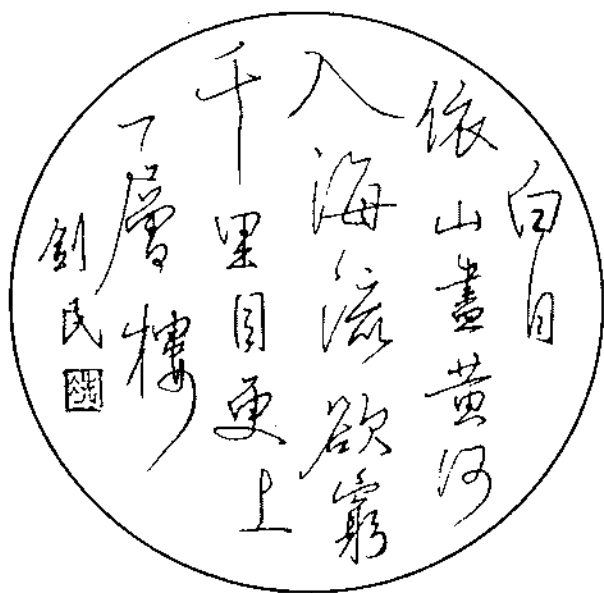 白日
依山盡黄河
入海流欲窮
千里目更上
一層樓
劍民